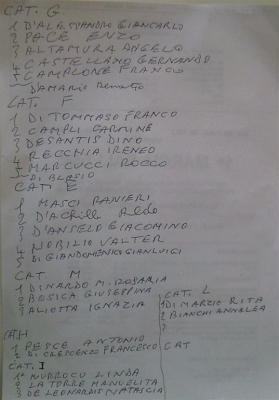 CAT. G
1 D'ALESSANDRO GIANCARLO
2 PACE ENZO
3 ALTAMURA ANGELO
4 CASTELLANO GERNANDO
5 CAMPLONE FRANCO
D'AMARIO Renato
CAT. F
1 DI TOMMASO FRANCO
2 CAMPLI CARMINE
3 DESANTIS DINO
4 RECCHIA IRENEO
5 MARCUCCI ROCCO
DI BLASIO
CAT E
1 MASCI RANIERI
2 D'Achille Aldo
3 D'ANGELO GIACOMINO
4 NOBILIO VALTER
5 DI GIANDOMENICO GIANLUIGI
CAT. M
1 DINARDO M. ROSARIA
2 BOSICA GIUSEPPINA
3 ALIOTTA IGNAZIA
CAT. L
1 DI MARZIO RITA
2 BIANCHI ANNALEA
3
CAT
CAT. H
1 PESCE ANTONIO
2 DI CRESCENZO FRANCESCO
CAT. I
1° MURROCU LINDA
2 LA TORRE MANUELITA
3 DE LEONARDIS NATASCIA